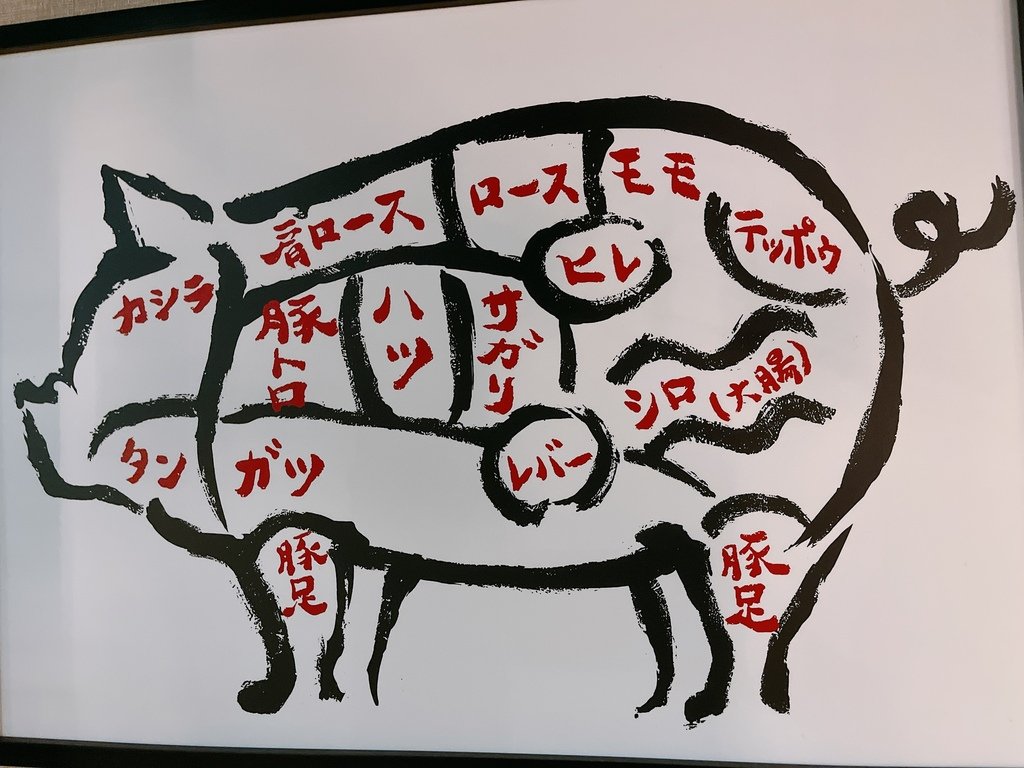 肩ロース
ロース
モモ
テッポウ
ヒレ
カシラ
豚トロ
ハツ
サガリ
シロ(大腸)
タン
ガツ
レバー
豚足
豚足